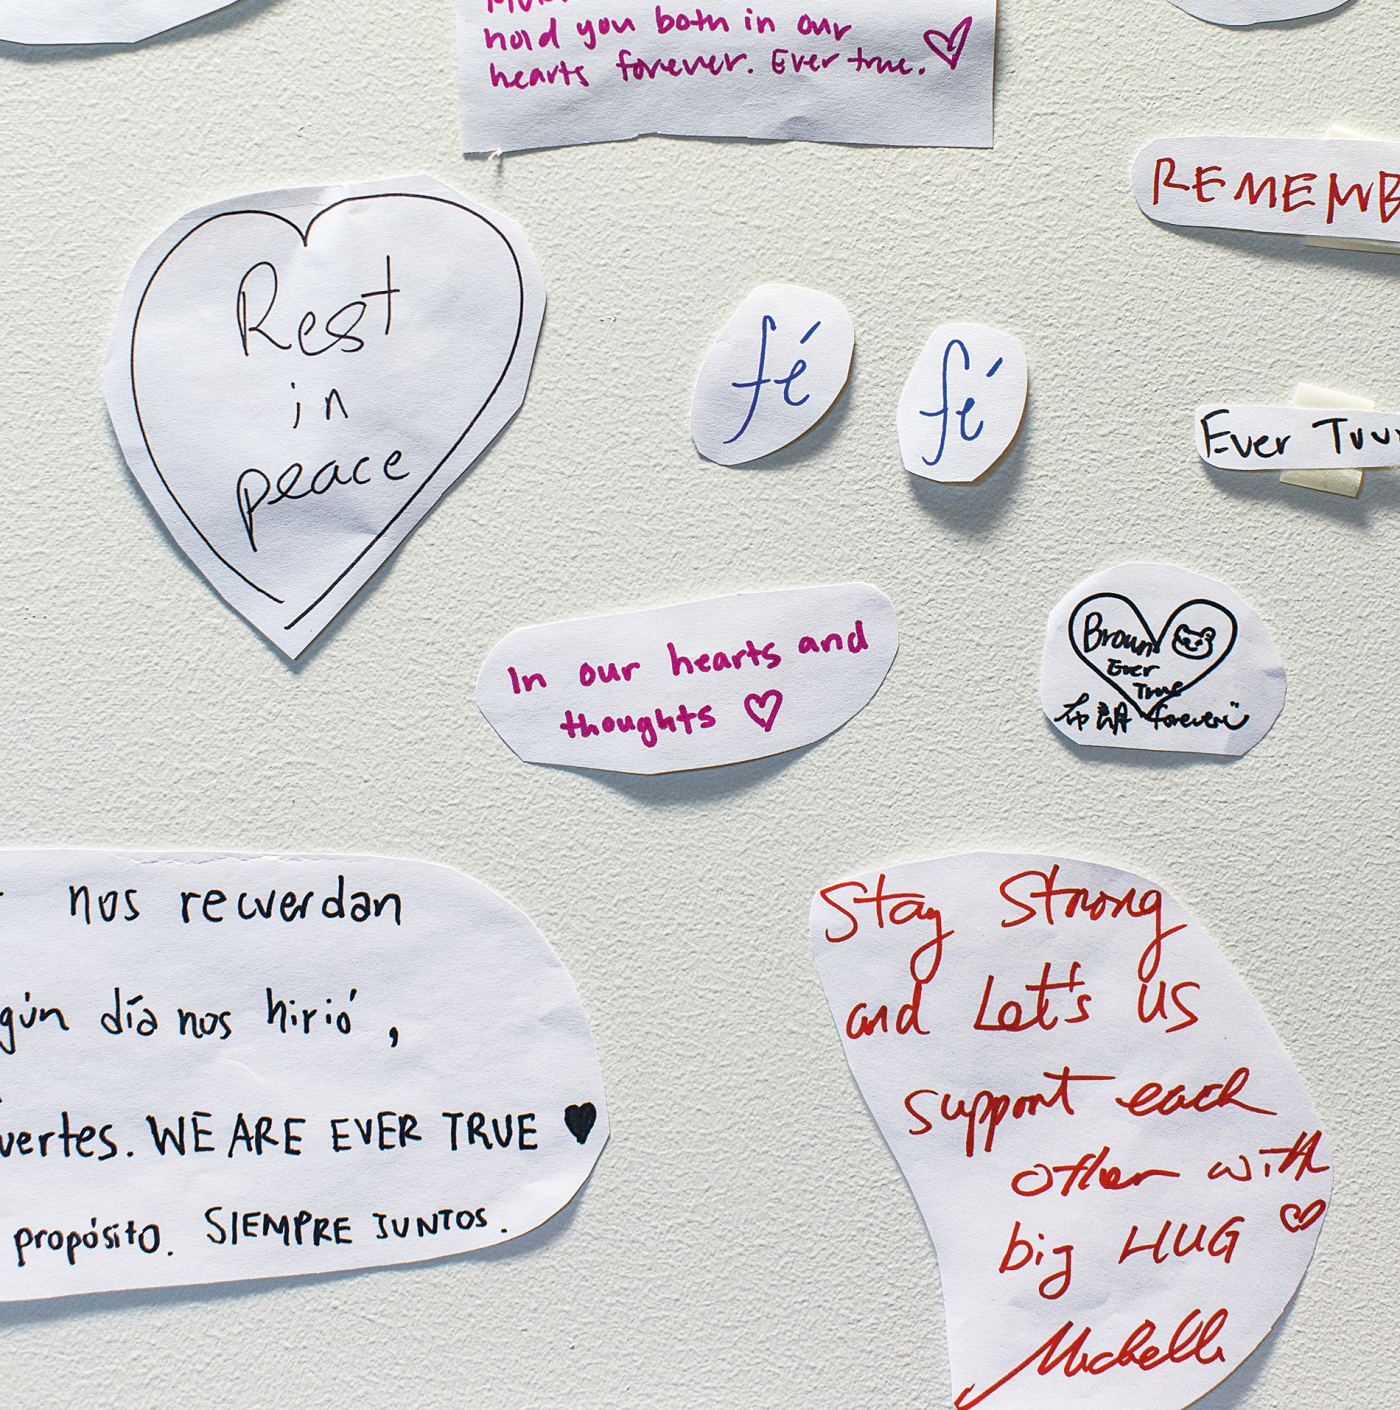 hold you both in our
hearts forever. Ever true.
REMEMB
Rest
in
peace
fé
fé
Ever True
In our hearts and
thoughts
Brown
Ever
True
布朗 forever
nos recuerdan
gún día nos hirió,
uertes. WE ARE EVER TRUE
propósito. SIEMPRE JUNTOS.
Stay Strong
and Let's US
support each
other with
big HUG
Michelle